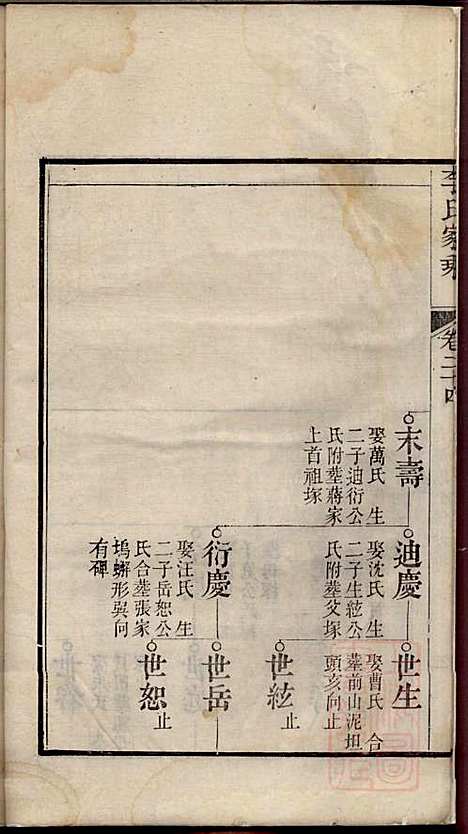 李氏家乘
卷二十四
末壽
娶萬氏 生
二子迪衍公
氏附塟蔣家
上首祖塚
迪慶
娶沈氏 生
二子生絃公
氏附塟父塚
衍慶
娶汪氏 生
二子岳恕公
氏合塟張家
塢蠏形巽向
有碑
世生
娶曹氏 合
塟前山泥坦
頭亥向止
世絃 止
世岳
世恕 止